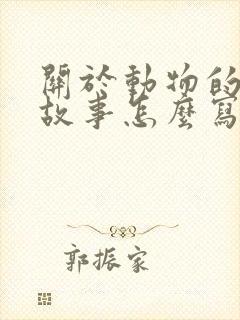 關於動物的
故事怎麼寫
郭振家